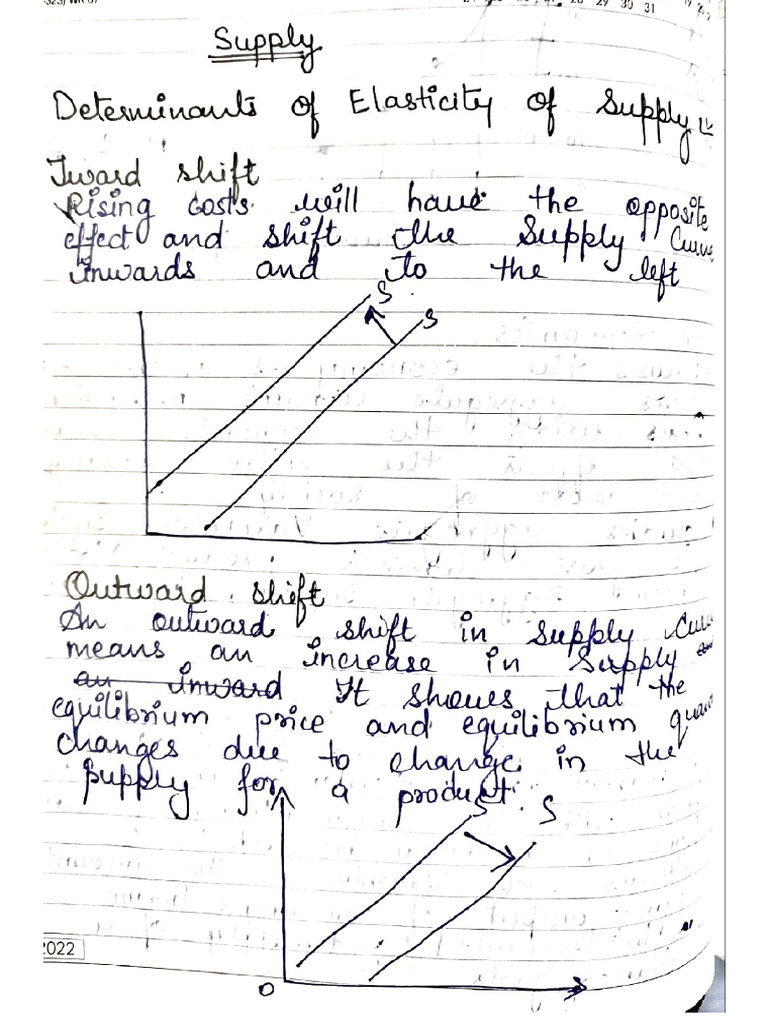 29 30 31
Supply
Determinants of Elasticity of Supply :-
Iward shift
Rising costs will have the opposite
effect and shift the Supply Curve
inwards and to the left
S
S
Outward shift
An outward shift in supply Curve
means an increase in Supply
an inward It shows that the
equilibrium price and equilibrium quan
changes due to change in the
supply for a product.
S S
O
2022